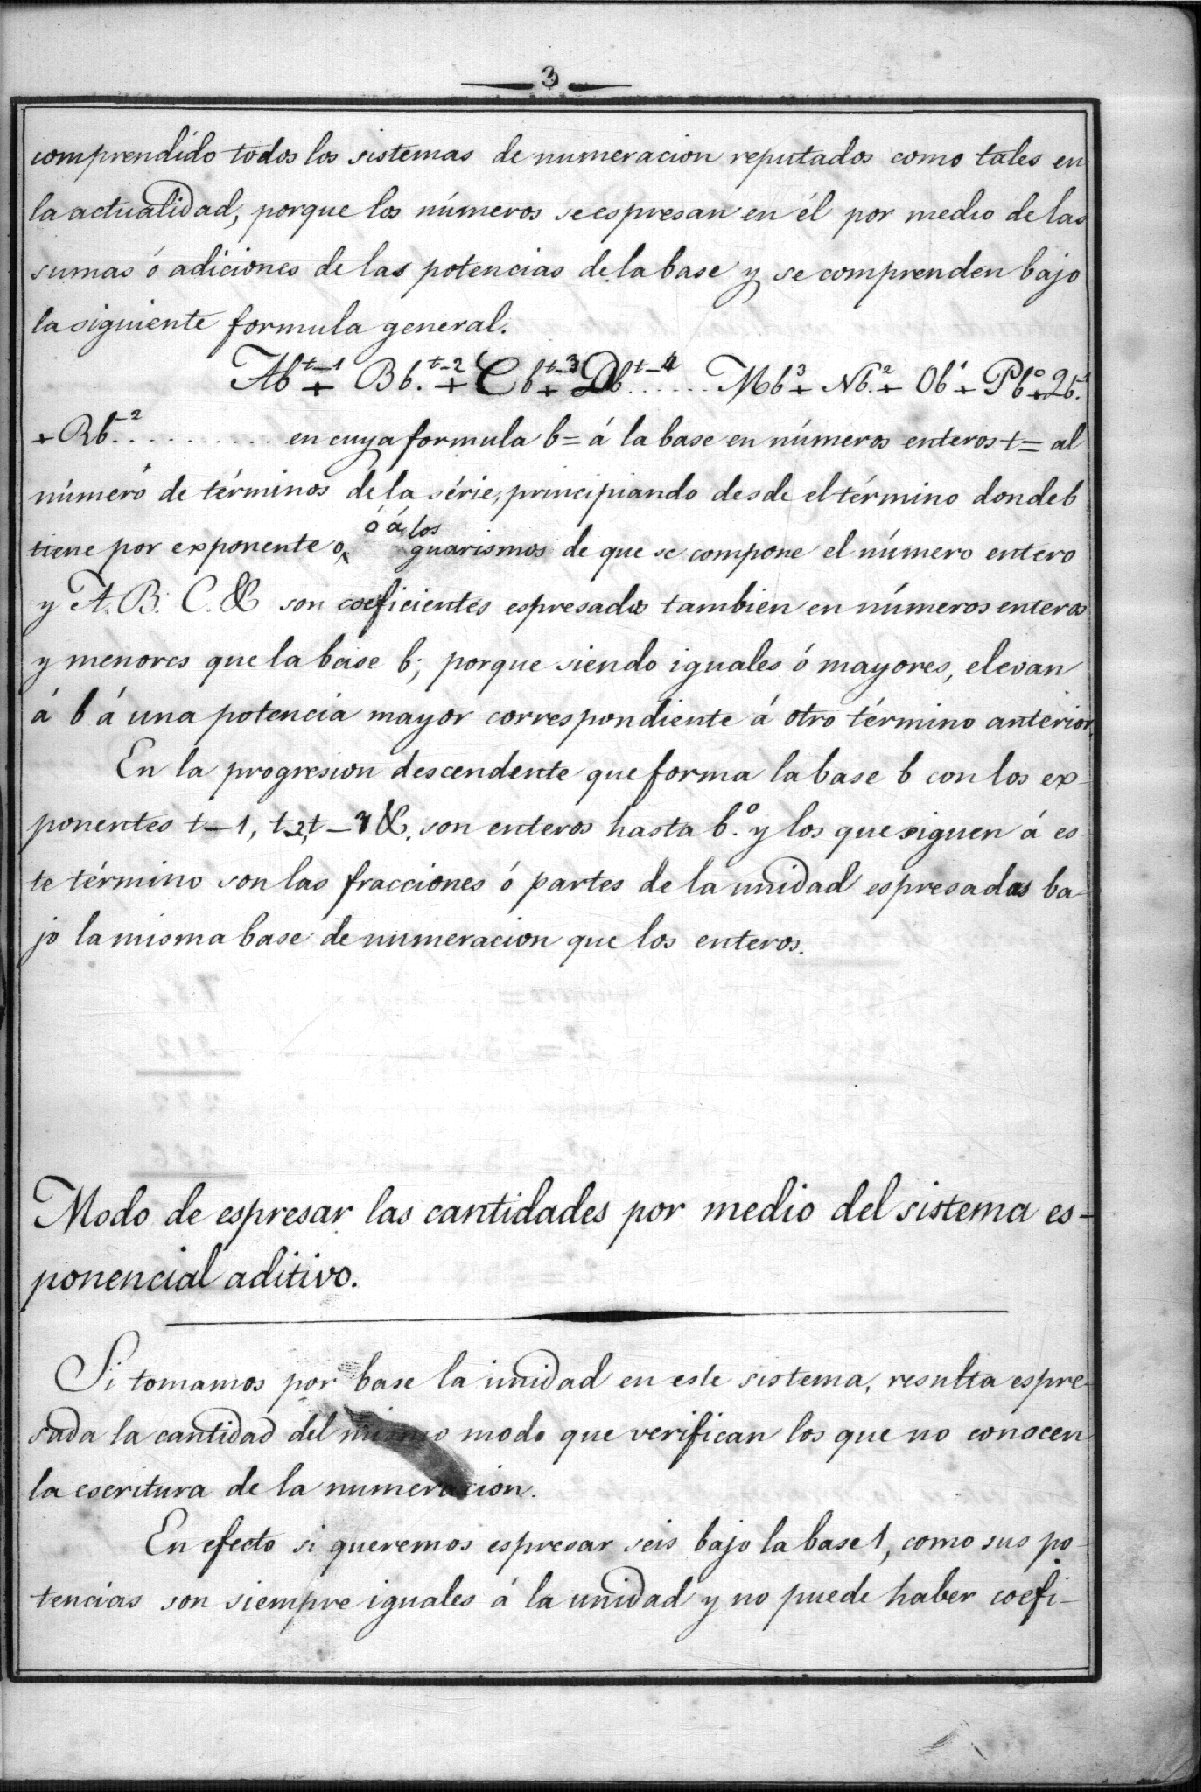 3
comprendido todos los sistemas de numeracion reputados como tales en
la actualidad, porque los números se espresan en él por medio de las
sumas ó adiciones de las potencias de la base y se comprenden bajo
la siguiente formula general.
Ab^t-1 + Bb.^t-2 + Cb^t-3 + Db^t-4 ...... Mb^3 + Nb.^2 + Ob^1 + Pb^0 + Qb.^-1
+ Rb^-2 .......... en cuya formula b = á la base en números enteros t = al
número de términos de la série, principiando desde el término donde b
tiene por exponente o, ó á los guarismos de que se compone el número entero
y A. B. C. & son coeficientes espresados tambien en números enteros
y menores que la base b; porque siendo iguales ó mayores, elevan
á b á una potencia mayor correspondiente á otro término anterior.
En la progresion descendente que forma la base b con los ex-
ponentes t-1, t-2, t-3 &, son enteros hasta b.^0 y los que siguen á es
te término son las fracciones ó partes de la unidad espresadas ba-
jo la misma base de numeracion que los enteros.
Modo de espresar las cantidades por medio del sistema es-
ponencial aditivo.
Si tomamos por base la unidad en este sistema, resulta espre-
sada la cantidad del mismo modo que verifican los que no conocen
la escritura de la numeracion.
En efecto si queremos espresar seis bajo la base 1, como sus po-
tencias son siempre iguales á la unidad y no puede haber coefi-